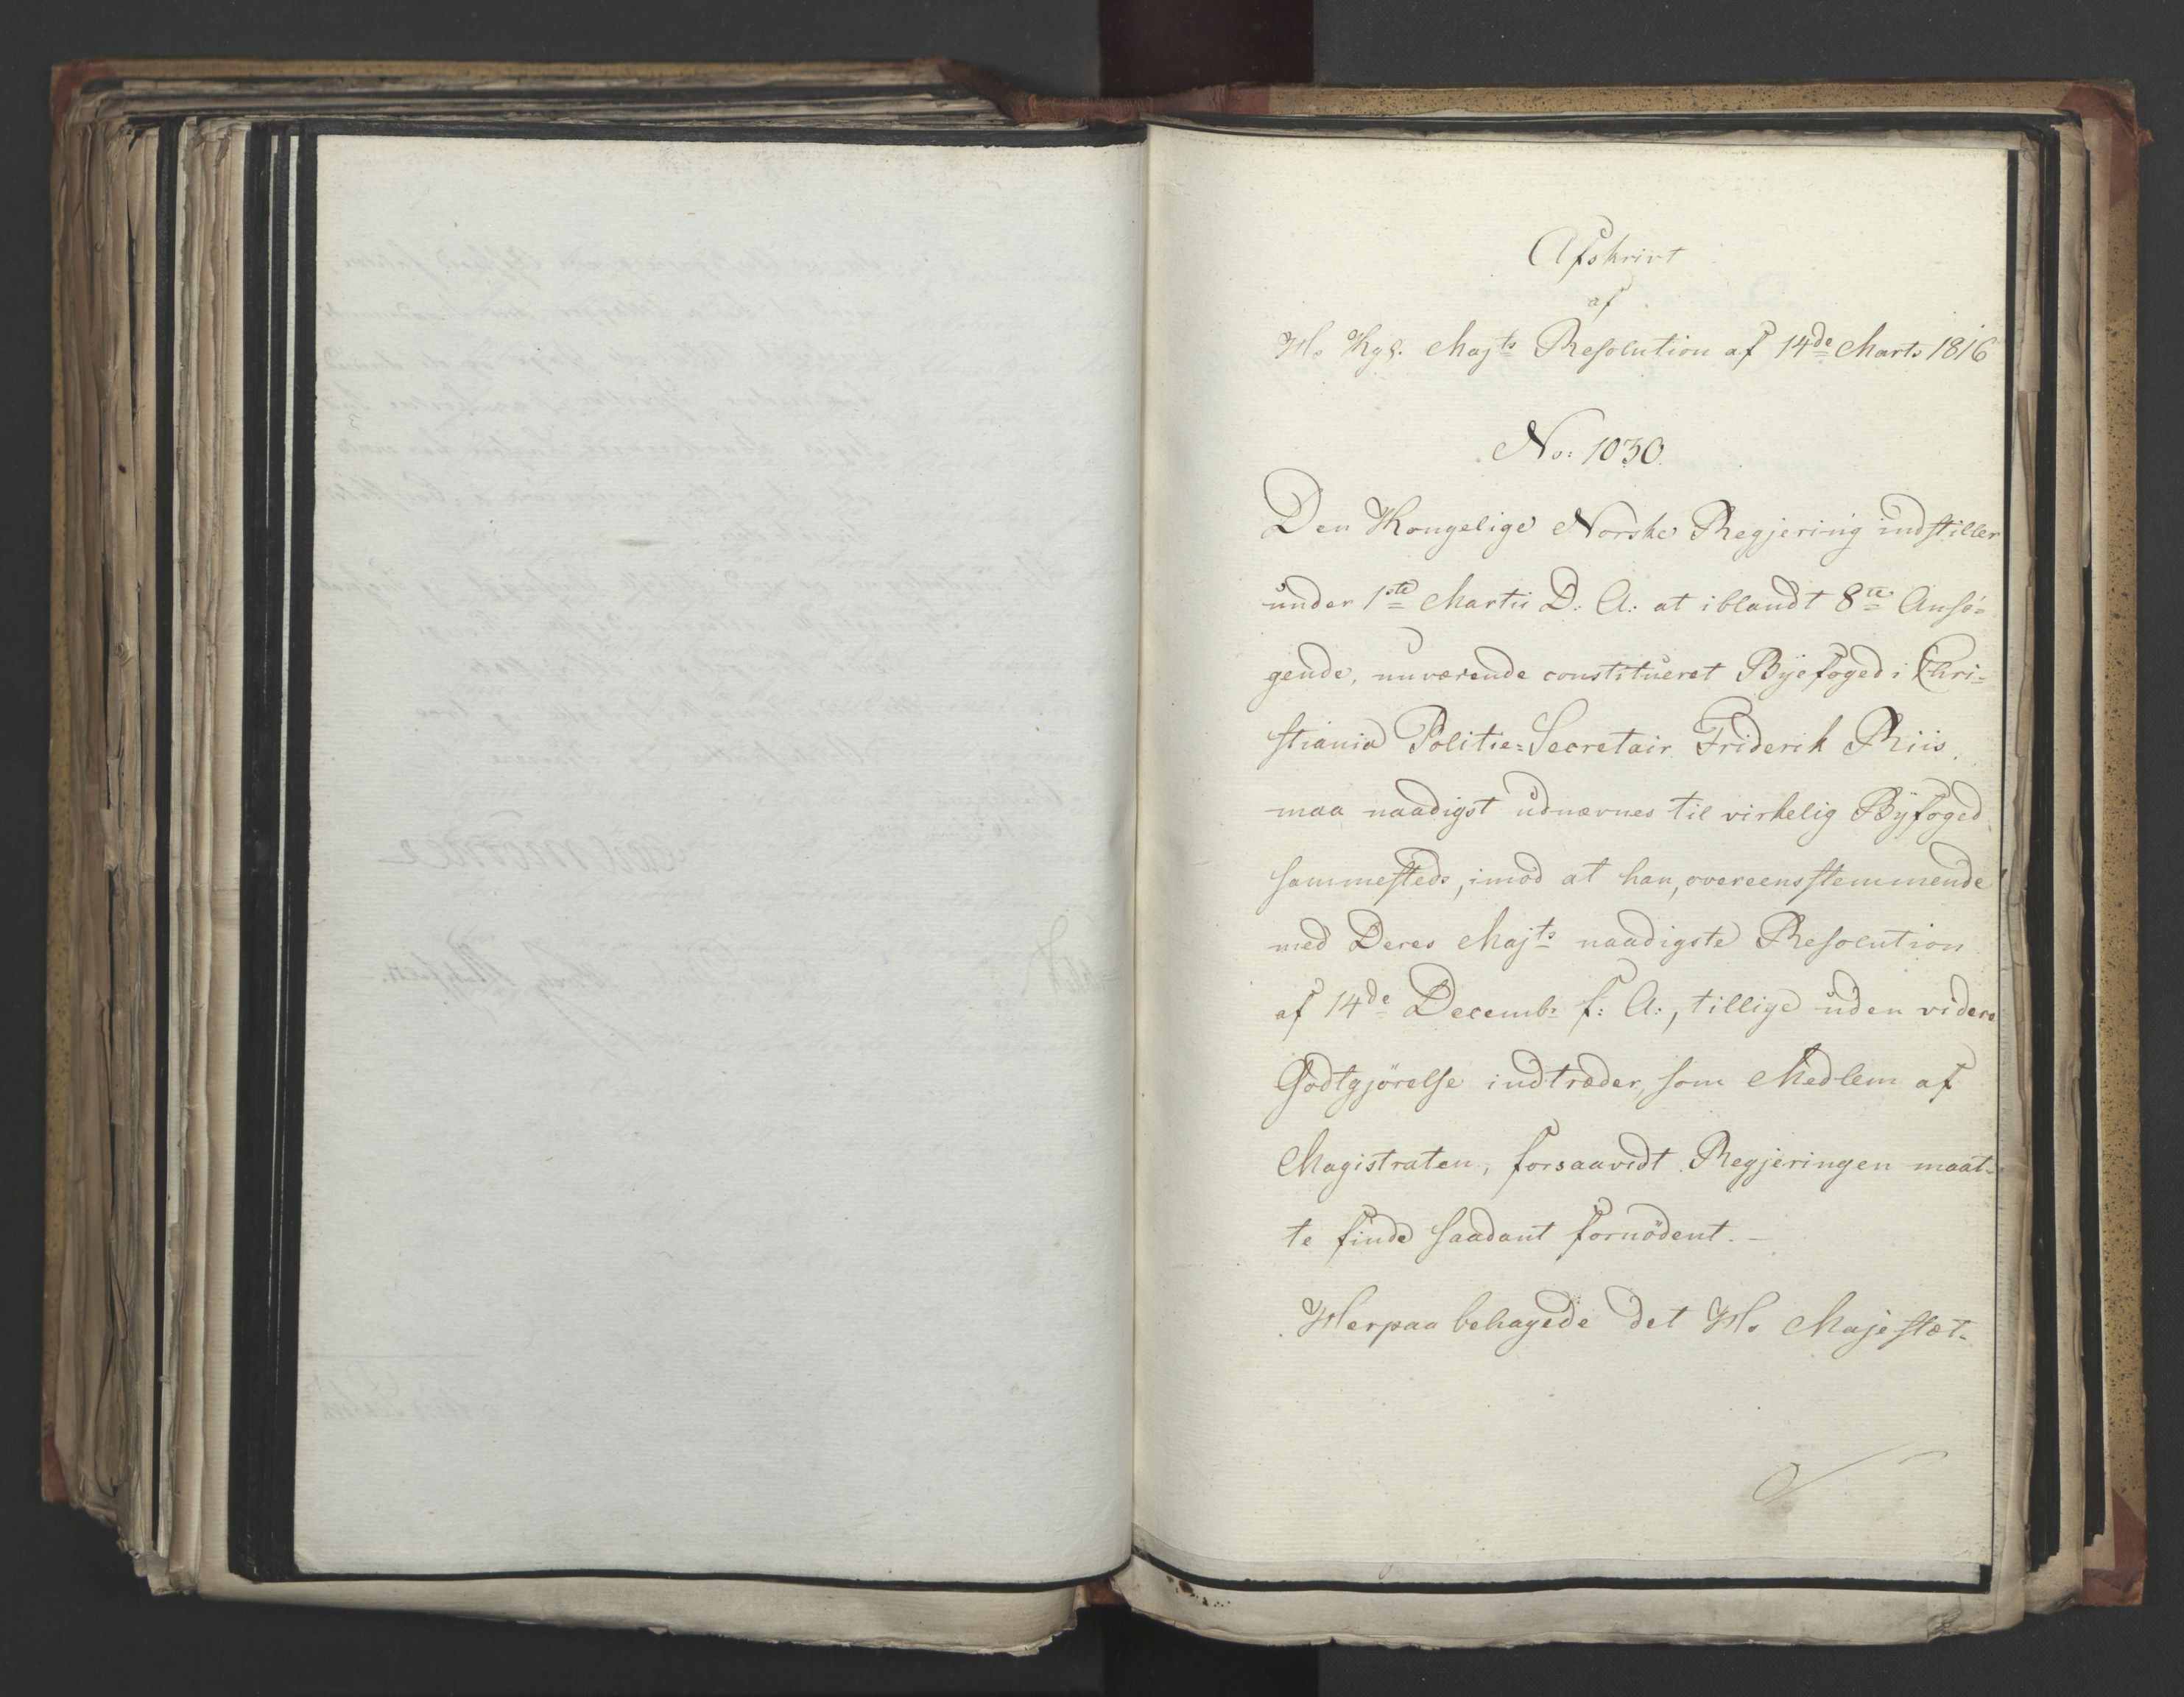 Afskrivt
af
Hs Kgl. Majts Resolution af 14de Marts 1816
No: 1030.
Den Kongelige Norske Regjering indstiller
under 1ste Martii D: A: at iblandt 8te Ansø=
gende, nuværende constitueret Byefoged i Chri=
stiania Politie=Secretair Friderik Riis,
maa naadigst udnævnes til virkelig Byfoged
sammesteds, imod at han, overeensstemmende
med Deres Majts naadigste Resolution
af 14de Decembr f: A:, tillige uden videre
Godtgjörelse indtræder, som Medlem af
Magistraten, forsaavidt Regjeringen maat=
te finde saadant fornödent. —
Herpaa behagede det Hs Majestæt